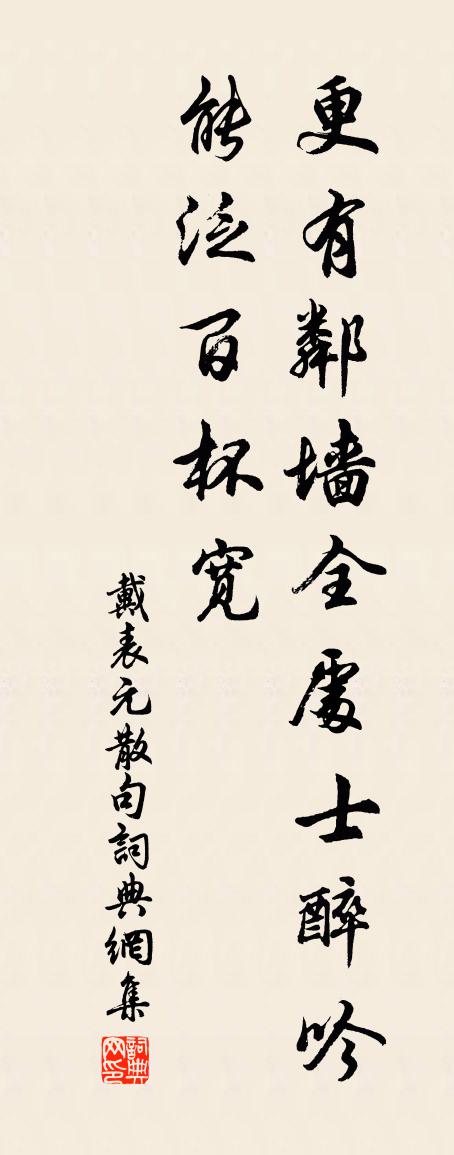 更有鄰墙全處士醉吟
能泛百杯寬
戴表元散句詞典網集
詞典网印